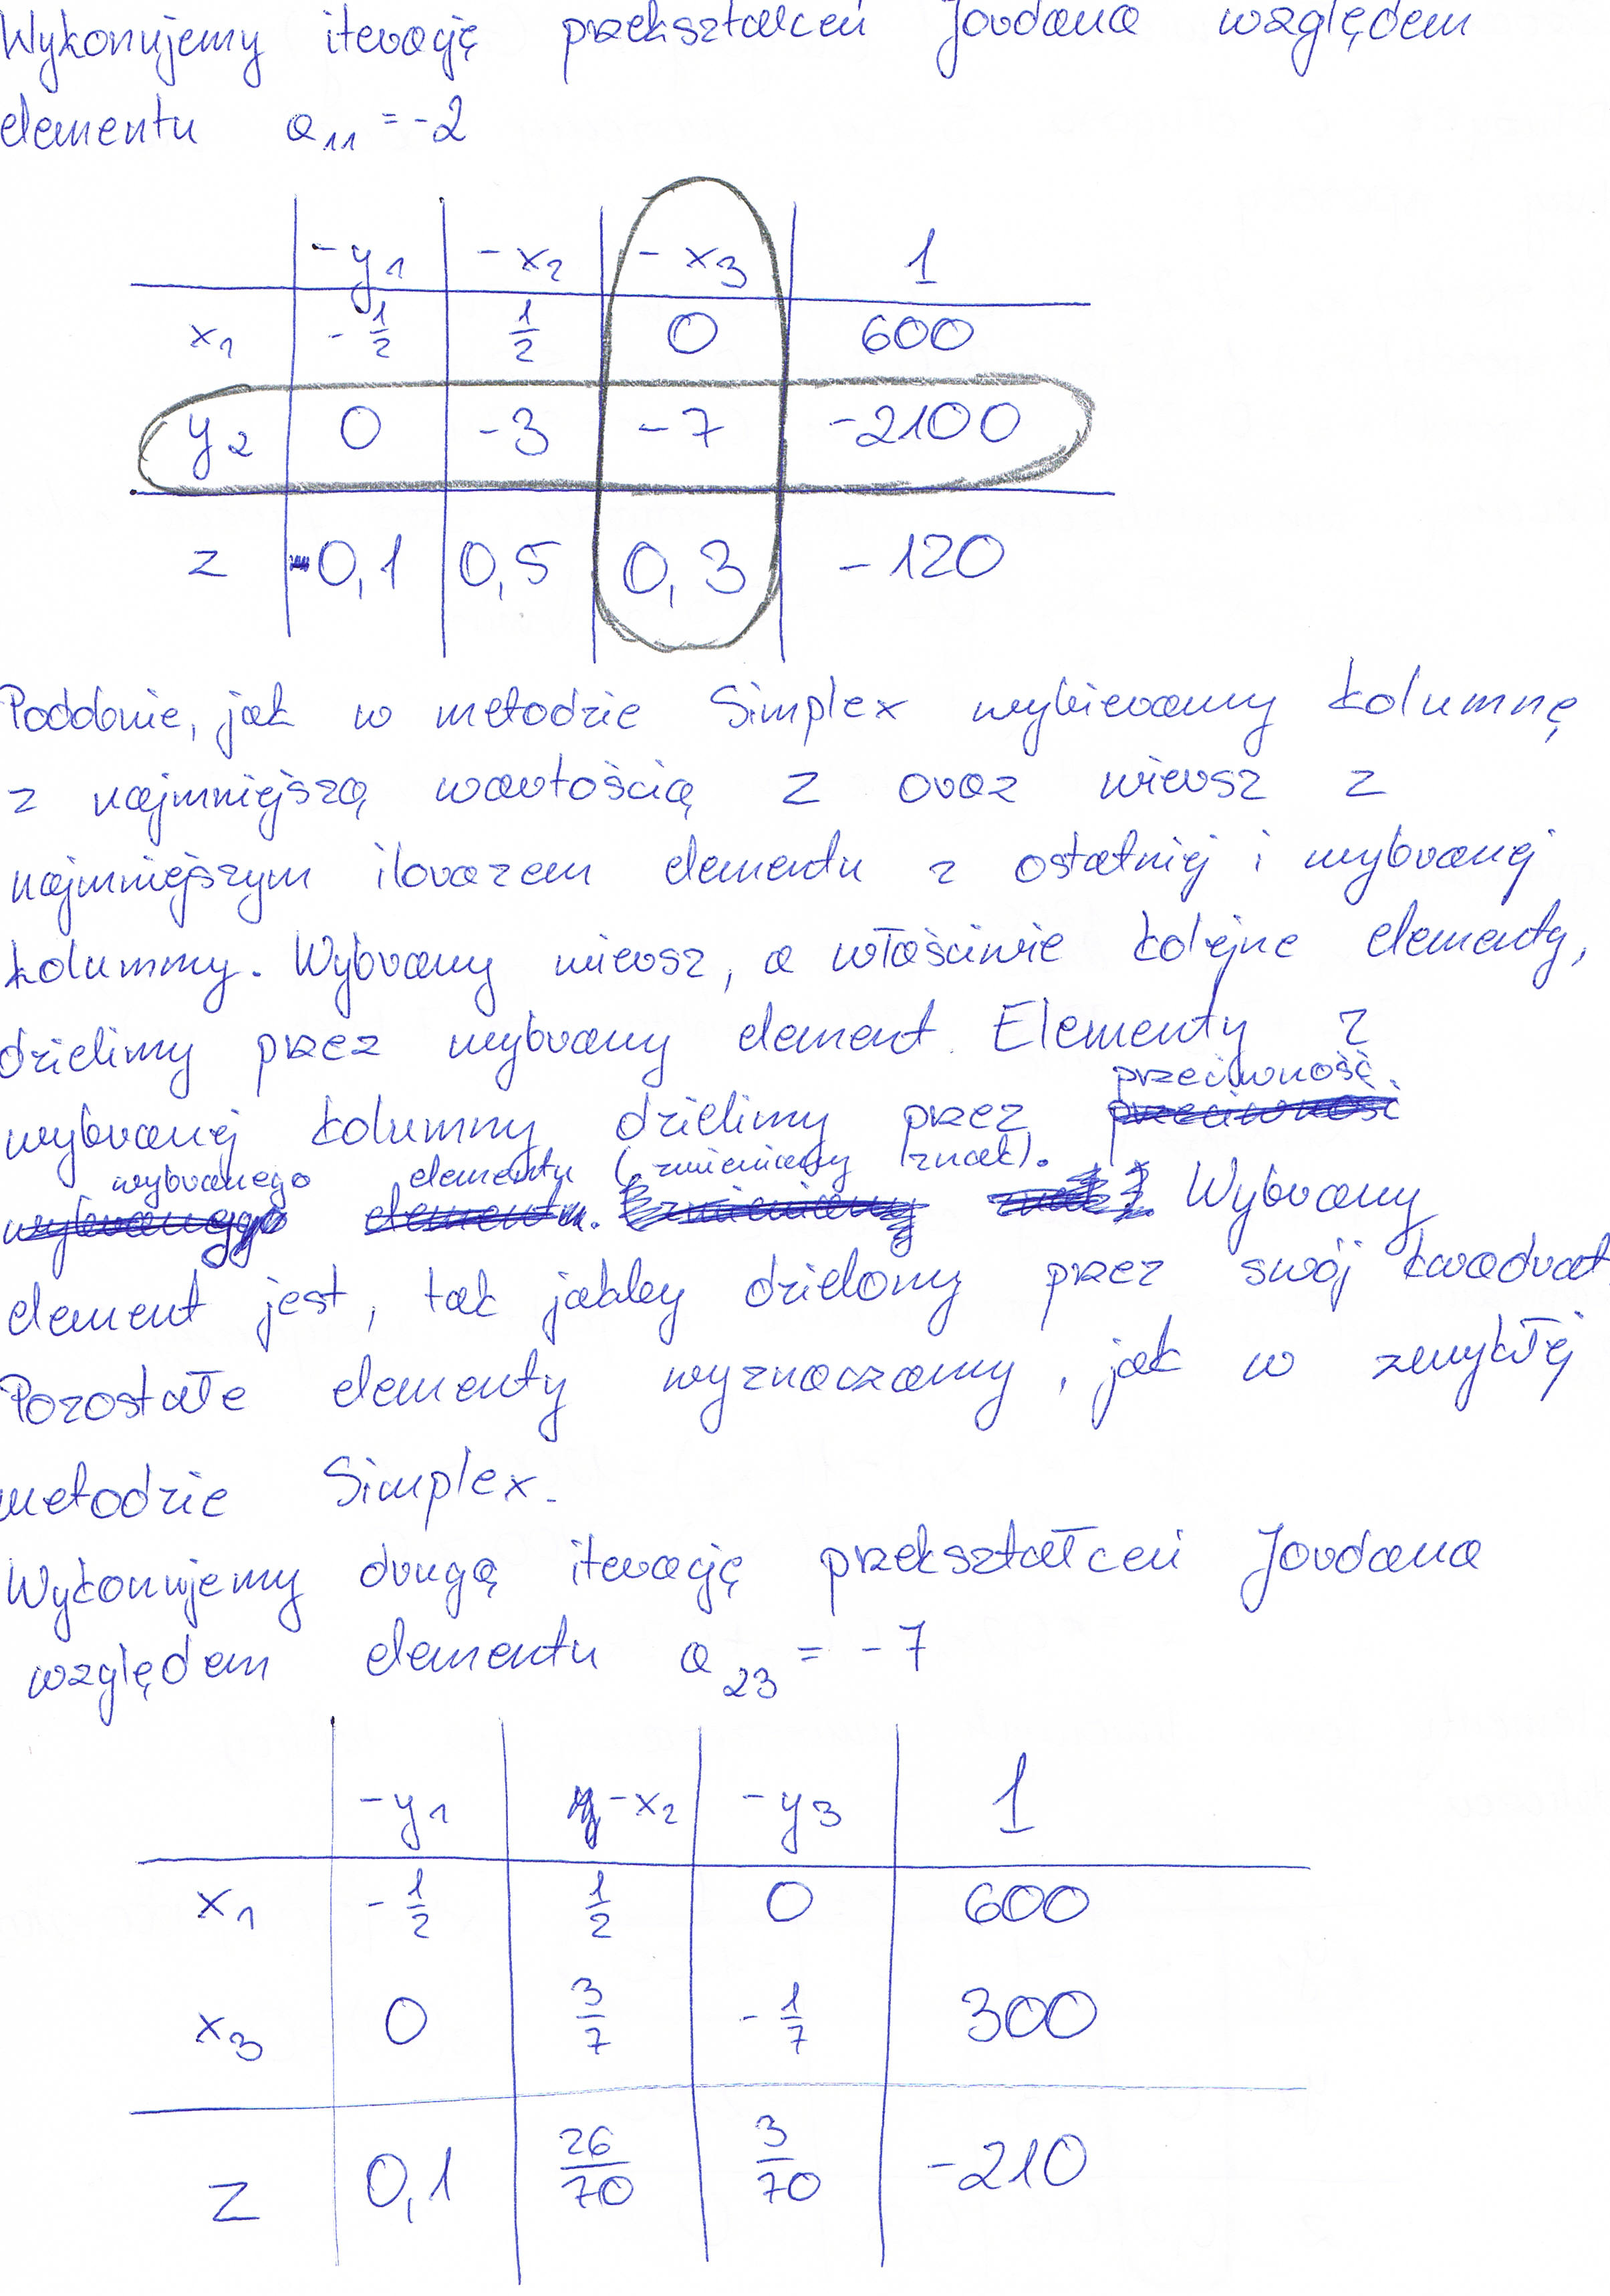 Wykonujemy iterację przekształceń Jordana względem
elementu a₁₁ = -2
-y₁ -x₂ -x₃ 1
x₁ -1/2 1/2 0 600
y₂ 0 -3 -7 -2100
z -0,1 0,5 0,3 -120
Podobnie, jak w metodzie Simplex wybieramy kolumnę
z najmniejszą wartością z oraz wiersz z
najmniejszym ilorazem elementu z ostatniej i wybranej
kolumny. Wybrany wiersz, a właściwie kolejne elementy,
dzielimy przez wybrany element. Elementy z
wybranej kolumny dzielimy przez przeciwność
wybranego elementu (zmieniamy znak). Wybrany
element jest, tak jakby dzielony przez swój kwadrat.
Pozostałe elementy wyznaczamy, jak w zwykłej
metodzie Simplex.
Wykonujemy drugą iterację przekształceń Jordana
względem elementu a₂₃ = -7
-y₁ -x₂ -y₃ 1
x₁ -1/2 1/2 0 600
x₃ 0 3/7 -1/7 300
z 0,1 26/70 3/70 -210